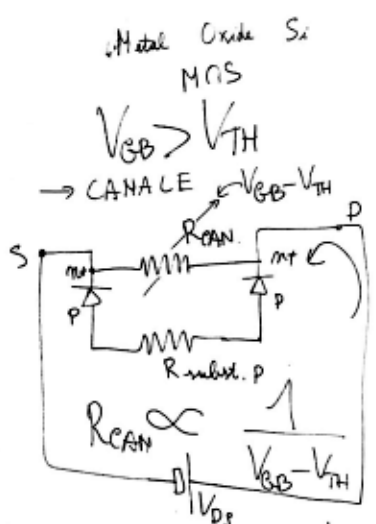 Metal Oxide Si
MOS
V_GB > V_TH
→ CANALE
V_GB - V_TH
R_CAN.
D
S
n+
n+
P
P
R subst. P
R_CAN ∝ 1 / V_GB - V_TH
V_DS